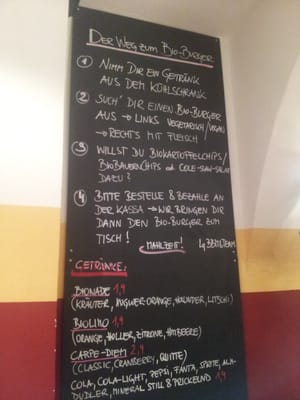 DER WEG ZUM BIO-BURGER
1 NIMM DIR EIN GETRÄNK
AUS DEM KÜHLSCHRANK
2 SUCH' DIR EINEN BIO-BURGER
AUS → LINKS VEGETARISCH/VEGAN
→ RECHTS MIT FLEISCH
3 WILLST DU BIOKARTOFFELCHIPS/
BIOBAUERNCHIPS od. COLE-SLAW-SALAT
DAZU?
4 BITTE BESTELLE & BEZAHLE AN
DER KASSA → WIR BRINGEN DIR
DANN DEN BIO-BURGER ZUM
TISCH!
MAHLZEIT!
GETRÄNKE:
BIONADE 1,9
(KRÄUTER, INGWER-ORANGE, HOLUNDER, LITSCHI)
BIOLINO 1,9
(ORANGE, HOLLER, ZITRONE, HIMBEERE)
CARPE-DIEM 2,9
(CLASSIC, CRANBERRY, QUITTE)
COLA, COLA-LIGHT, PEPSI, FANTA, SPRITE, ALM-
DUDLER, MINERAL STILL & PRICKELND 1,9